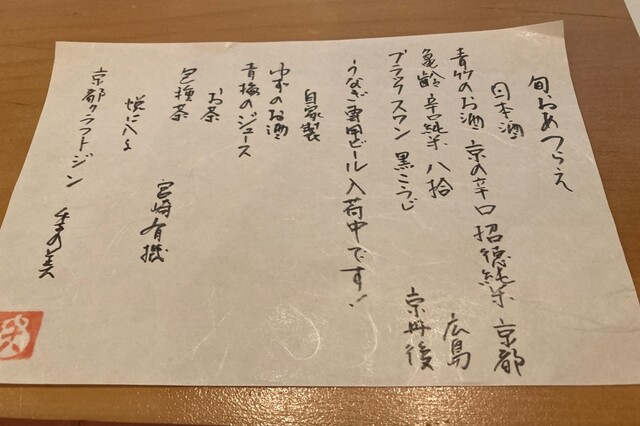 旬おあつらえ
日本酒
青竹のお酒 京の辛口 招德純米 京都
亀齢 辛口純米 八拾 広島
ブラックスワン 黒こうじ 京丹後
うなぎ専用ビール入荷中です!
自家製
ゆずのお酒
青梅のジュース
お茶
包種茶 宮崎有機
悦に入る
京都クラフトジン 季の美